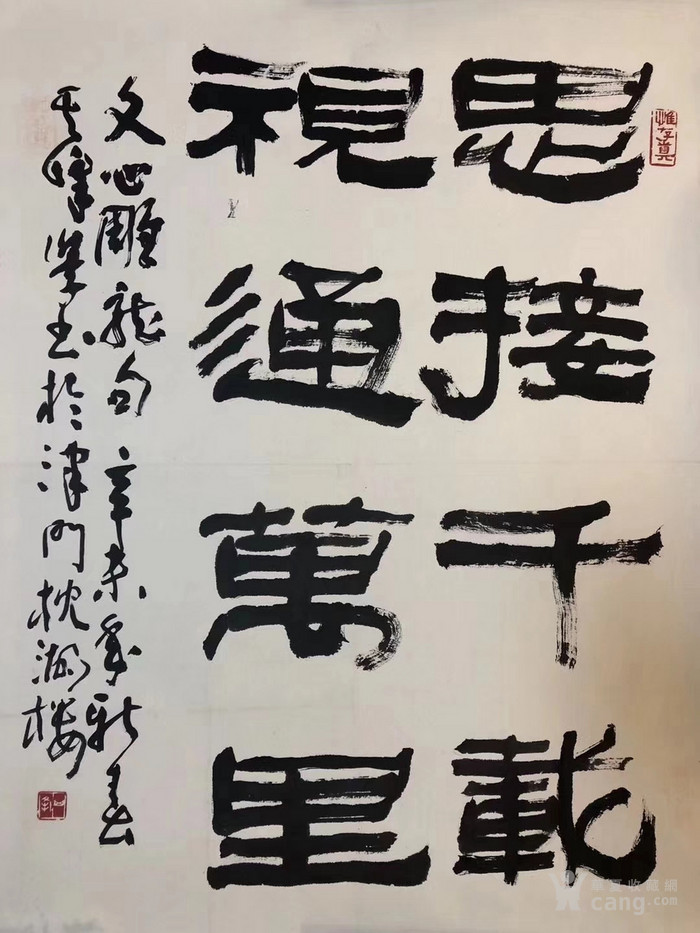 思接千載
視通萬里
文心雕龍句 辛未年新春
書於津門枕湖樓
惟存真
華夏收藏網
cang.com